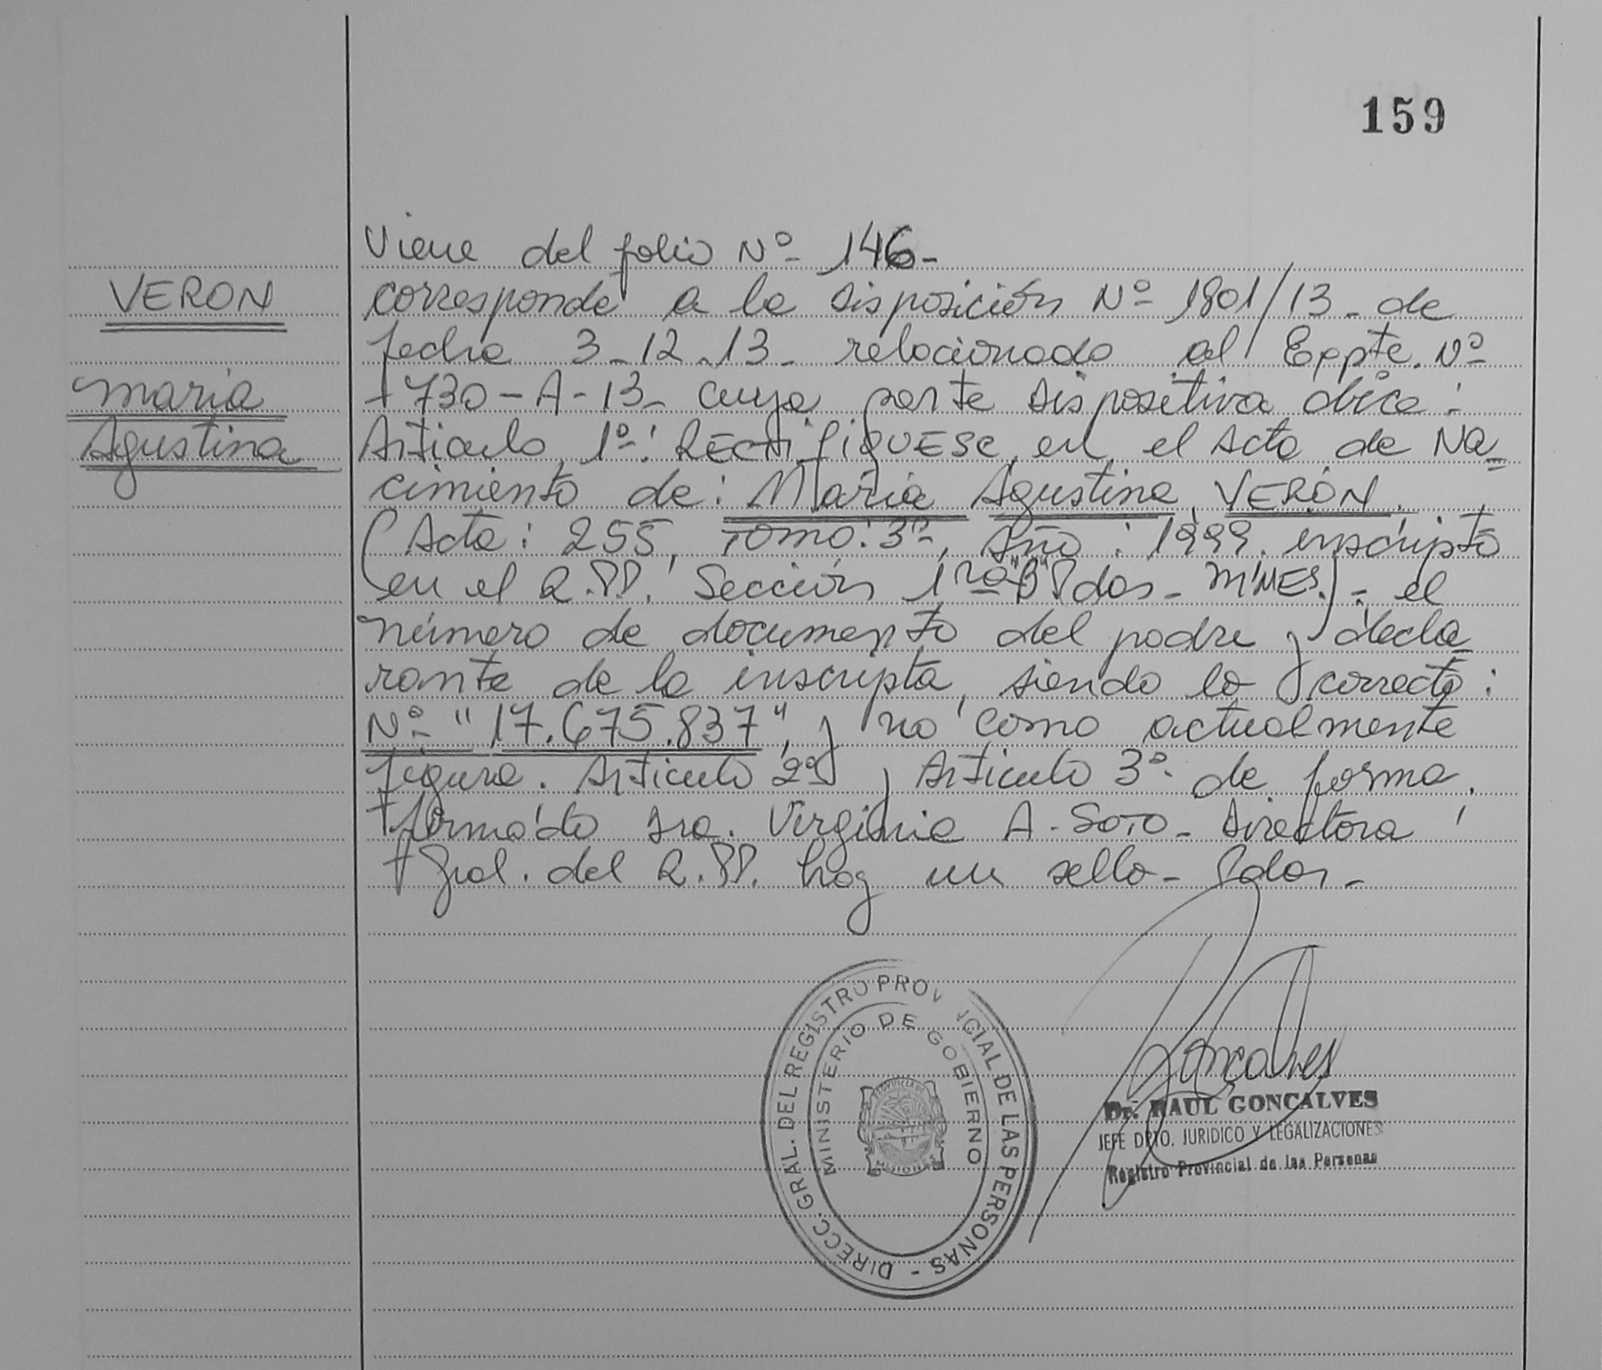 159
Viene del folio Nº 146-
VERON
corresponde a la disposición Nº 1801/13- de
fecha 3-12-13- relacionado al Expte. Nº
Maria
1730-A-13- cuya parte dispositiva dice:
Agustina
Articulo 1º: RECTIFIQUESE en el Acta de Na=
cimiento de: Maria Agustina VERON.
(Acta: 255, Tomo: 3º, Año: 1999. inscripto
en el R.PP. Sección 1ra "B" Pdas- M'NES.)- el
número de documento del padre y decla=
rante de la inscripta, siendo lo correcto:
Nº "17.675.837", y no como actualmente
figura. Articulo 2º y Articulo 3º de forma.
firmado Sra. Virginia A. Soto- Directora
Gral. del R.PP. hay un sello- Pdas-
DIRECC. GRAL. DEL REGISTRO PROVINCIAL DE LAS PERSONAS -
MINISTERIO DE GOBIERNO
PROVINCIA DE
MISIONES
Goncalves
Dr. RAUL GONCALVES
JEFE DPTO. JURIDICO Y LEGALIZACIONES
Registro Provincial de las Personas